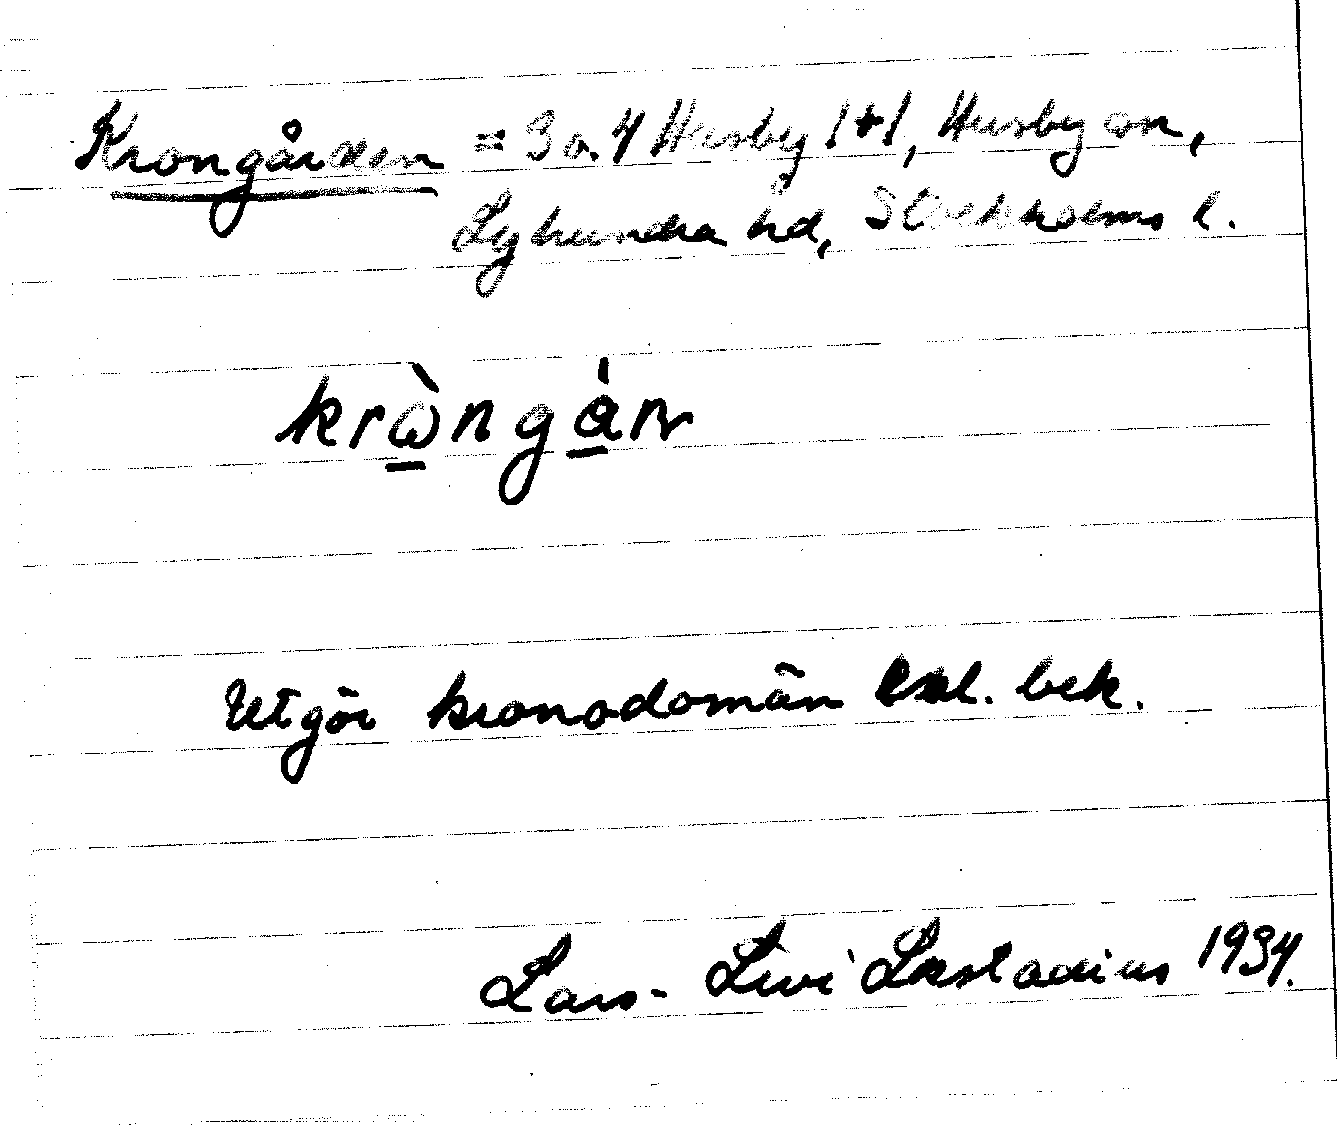 Krongården = 3 o. 4 Husby 1+1, Husby sn,
Lyhundra hd, Stockholms l.
krὼ̲ngɑ̲́ɲ
Utgör kronodomän enl. bek.
Lars-Levi Læstadius 1934.